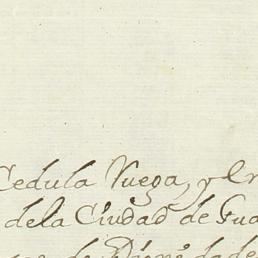 Cedula Nueva, y en
dela Ciudad de Gua
de